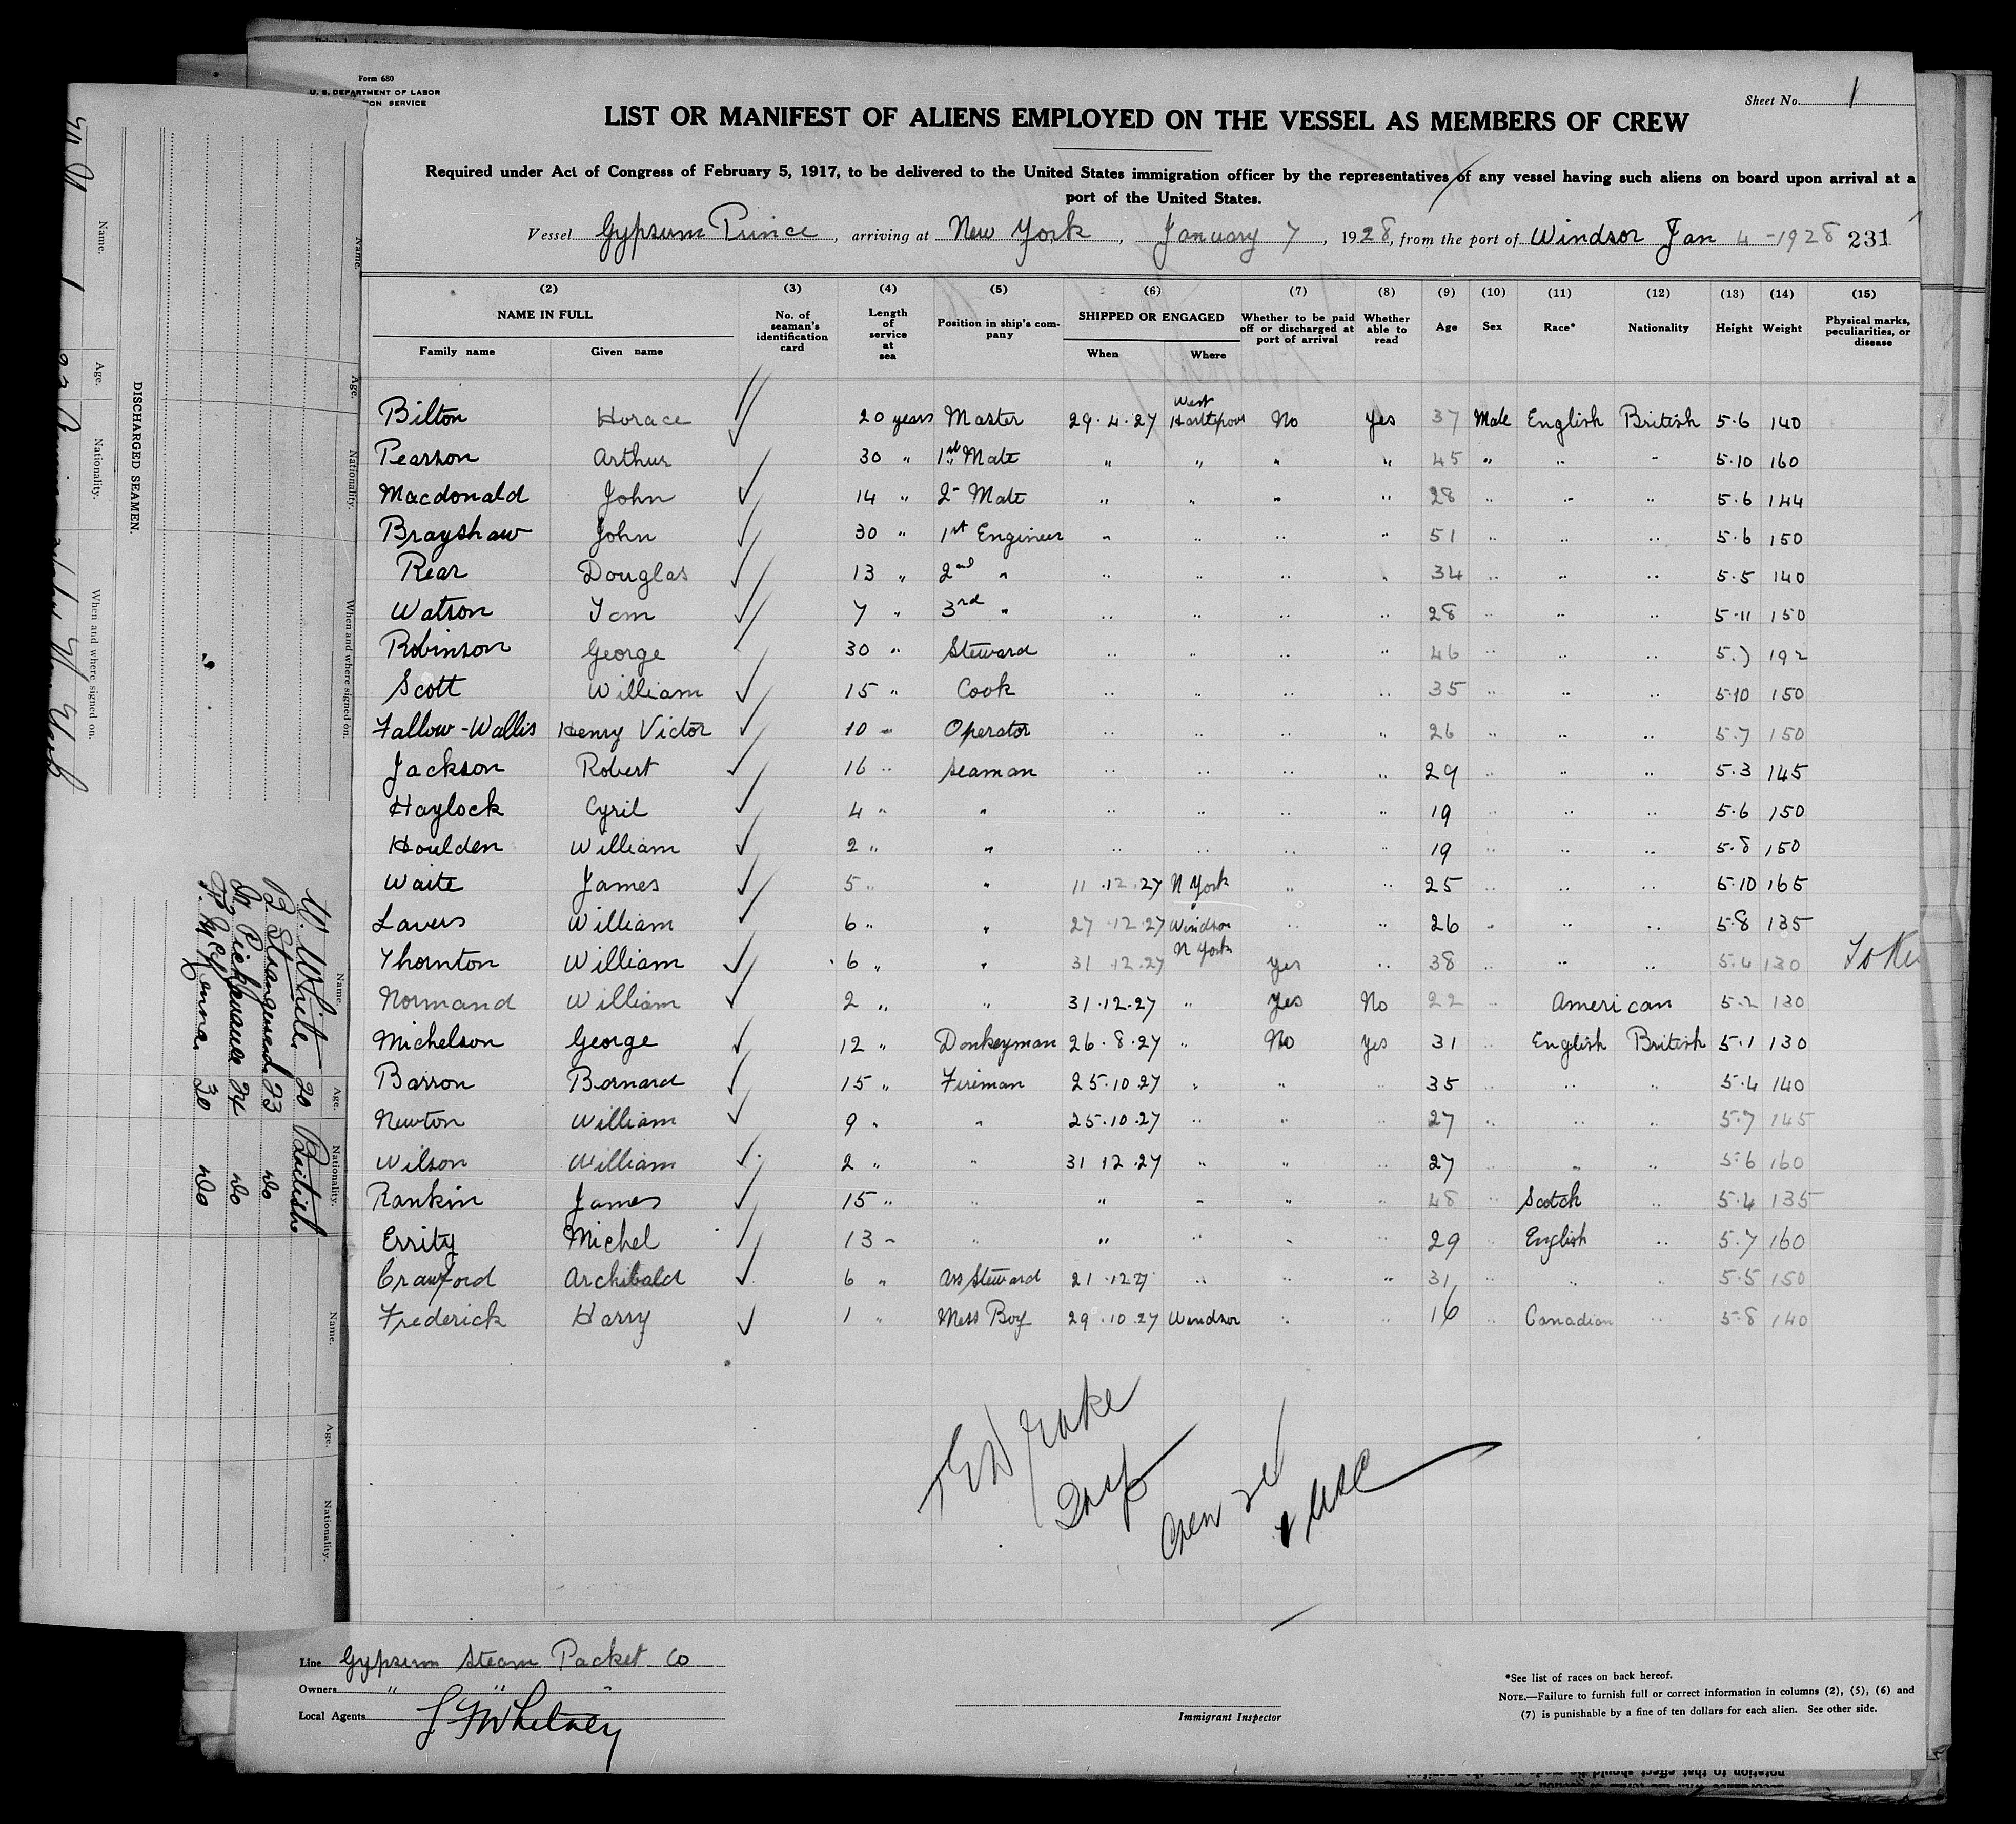 Form 680
U. S. DEPARTMENT OF LABOR
ION SERVICE
Sheet No. 1
LIST OR MANIFEST OF ALIENS EMPLOYED ON THE VESSEL AS MEMBERS OF CREW
Required under Act of Congress of February 5, 1917, to be delivered to the United States immigration officer by the representatives of any vessel having such aliens on board upon arrival at a
port of the United States.
Vessel Gypsum Prince, arriving at New York, January 7, 1928, from the port of Windsor Jan 4-1928 231
(2) (3) (4) (5) (6) (7) (8) (9) (10) (11) (12) (13) (14) (15)
NAME IN FULL No. of seaman's identification card Length of service at sea Position in ship's company SHIPPED OR ENGAGED Whether to be paid off or discharged at port of arrival Whether able to read Age Sex Race* Nationality Height Weight Physical marks, peculiarities, or disease
Family name Given name When Where
Bilton Horace 20 years Master 29.4.27 West Hartlepool No Yes 37 Male English British 5.6 140
Pearson Arthur 30 " 1st Mate " " " " 45 " " " 5.10 160
Macdonald John 14 " 2- Mate " " " " 28 " " " 5.6 144
Brayshaw John 30 " 1st Engineer " " " " 51 " " " 5.6 150
Rear Douglas 13 " 2nd " " " " " 34 " " " 5.5 140
Watson Tom 7 " 3rd " " " " " 28 " " " 5.11 150
Robinson George 30 " Steward " " " " 46 " " " 5.) 192
Scott William 15 " Cook " " " " 35 " " " 5.10 150
Fallow-Wallis Henry Victor 10 " Operator " " " " 26 " " " 5.7 150
Jackson Robert 16 " seaman " " " " 29 " " " 5.3 145
Haylock Cyril 4 " " " " " " 19 " " " 5.6 150
Houlden William 2 " " " " " " 19 " " " 5.8 150
Waite James 5 " " 11.12.27 N York " " 25 " " " 5.10 165
Lavers William 6 " " 27.12.27 Windsor " " 26 " " " 5.8 135
Thornton William 6 " " 31.12.27 N York yes " 38 " " " 5.4 130
Normand William 2 " " 31.12.27 " yes No 22 " American 5.2 130
Michelson George 12 " Donkeyman 26.8.27 " No yes 31 " English British 5.1 130
Barron Bernard 15 " Fireman 25.10.27 " " " 35 " " " 5.4 140
Newton William 9 " " 25.10.27 " " " 27 " " " 5.7 145
Wilson William 2 " " 31 12.27 " " " 27 " " " 5.6 160
Rankin James 15 " " " " " " 48 " Scotch " 5.4 135
Errity Michel 13 " " " " " " 29 " English " 5.7 160
Crawford Archibald 6 " Ass Steward 21.12.27 " " " 31 " " " 5.5 150
Frederick Harry 1 " Mess Boy 29.10.27 Windsor " " 16 " Canadian " 5.8 140
Insp
Line Gypsum Steam Packet Co
Owners " " "
Local Agents
Immigrant Inspector
*See list of races on back hereof.
NOTE.—Failure to furnish full or correct information in columns (2), (5), (6) and
(7) is punishable by a fine of ten dollars for each alien. See other side.
DISCHARGED SEAMEN.
Name. Age. Nationality. When and where signed on.
Name. Age. Nationality. When and where signed on
Name. Age. Nationality.
W. White 20 British
23 do
24 do
McKenna 30 do
Name. Age. Nationality.